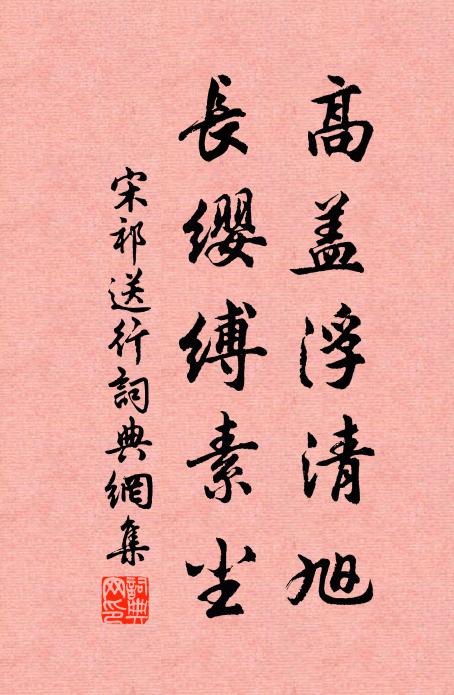 高盖浮清旭
長纓縛素尘
宋祁送行詞典網集
詞典
网印